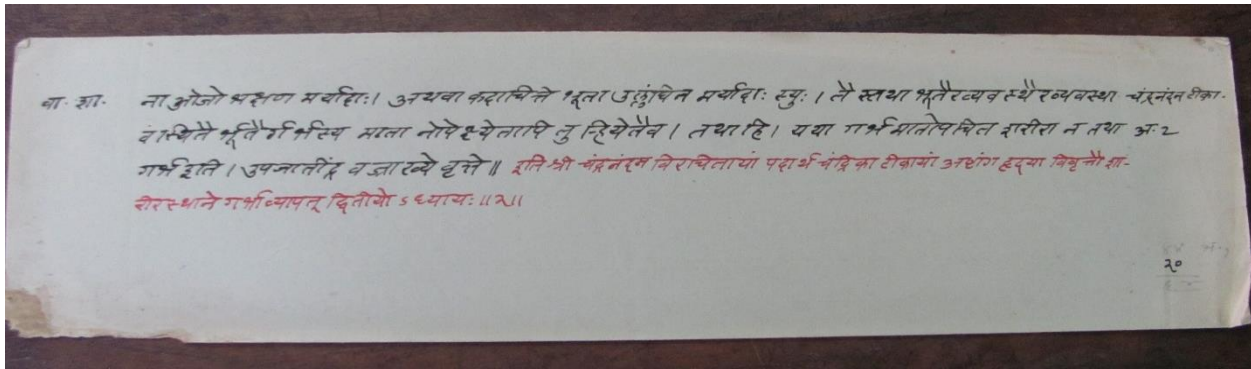 वा. शा. ना ओजो भक्षण मर्यादाः। अथवा कदाचित्ते भूता उल्लंघित मर्यादाः स्युः। तै स्तथा भूतैरव्यवस्थैरव्यवस्था चंद्रनंदन टीका.
वंस्थितै र्भूतै र्गर्भस्य माता नोपेक्ष्येतापि तु ह्रियेतैव। तथाहि। यथा गर्भमातोपचित शरीरा न तथा अ. २
गर्भ इति। उपजातींद्र वज्राख्ये वृत्ते॥ इति श्री चंद्रनंदन विरचितायां पदार्थ चंद्रिका टीकायां अष्टांग हृदया विवृत्तौ शा-
रीरस्थाने गर्भव्यापत् द्वितीयो ऽध्यायः॥२॥
२०